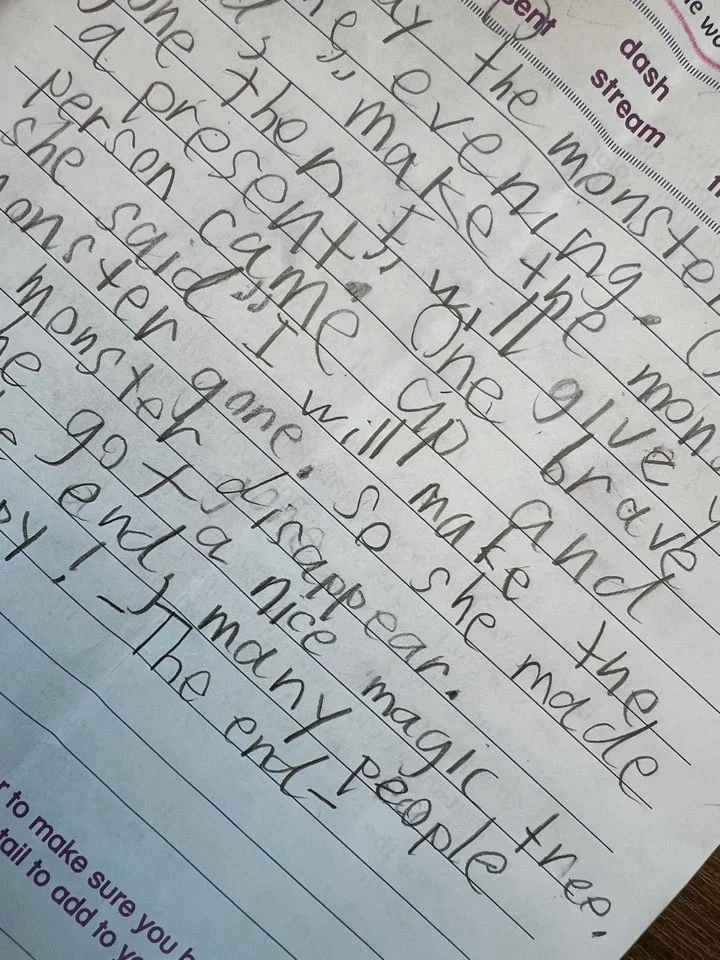 dash
stream
the monster
evening.
make the
one then I will give
a present". One brave
person came up and
she said "I will make the
onster gone. so she made
monster disappear.
he got a nice magic tree.
end, many people
py!
-The end-
to make sure you
tail to add to